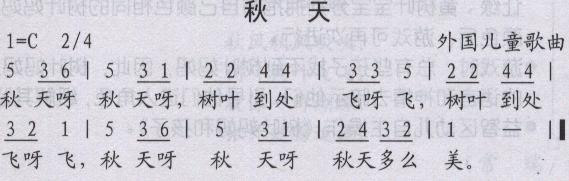 秋 天
1=C 2/4 外国儿童歌曲
5 3 6 | 5 3 1 | 2 2 4 4 | 5 3 5 | 2 2 4 4 |
秋 天呀 秋 天呀, 树叶 到处 飞呀 飞, 树叶 到处
3 2 1 | 5 3 6 | 5 3 1 | 2 4 3 2 | 1 — ‖
飞呀 飞, 秋 天呀 秋 天呀 秋天多么 美。